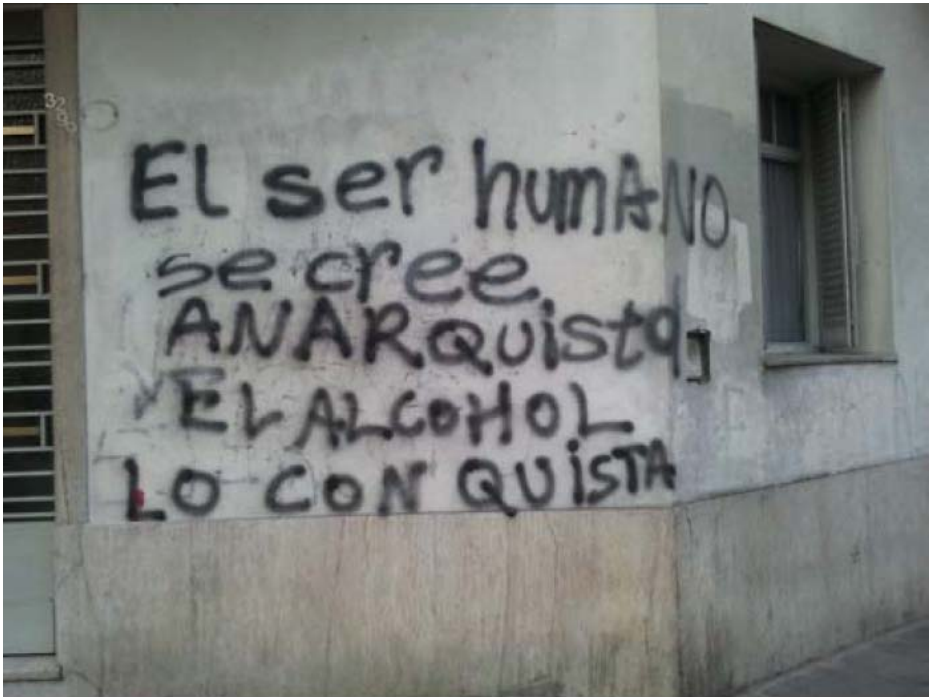 3290
El ser humANO
se cree
ANARQuista
Y EL ALCOHOL
LO CONQUiSTA